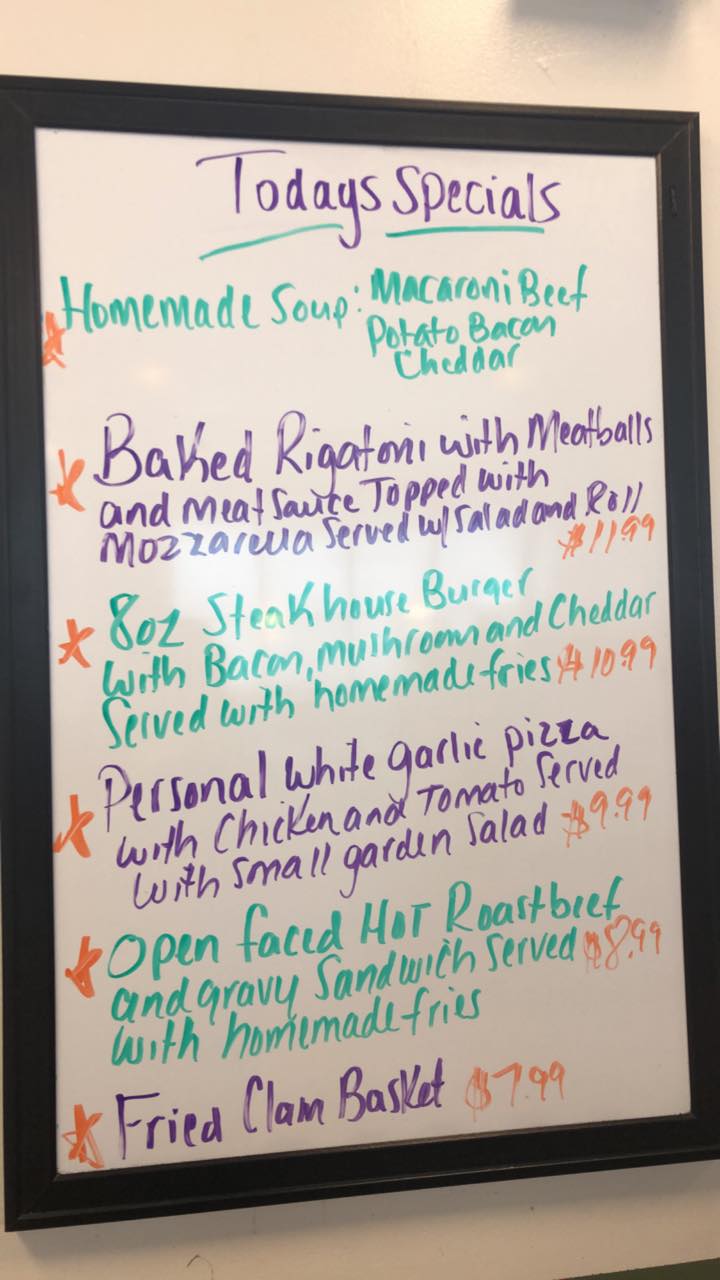 Todays Specials
Homemade Soup: Macaroni Beef
Potato Bacon
Cheddar
Baked Rigatoni with Meatballs
and meat sauce Topped with
Mozzarella Served w/ Salad and Roll
$11.99
8oz Steakhouse Burger
with Bacon, mushroom and Cheddar
Served with homemade fries $10.99
Personal white garlic pizza
with Chicken and Tomato Served
with small garden Salad $9.99
Open faced HOT Roastbeef
and gravy Sandwich Served $8.99
with homemade fries
Fried Clam Basket $7.99